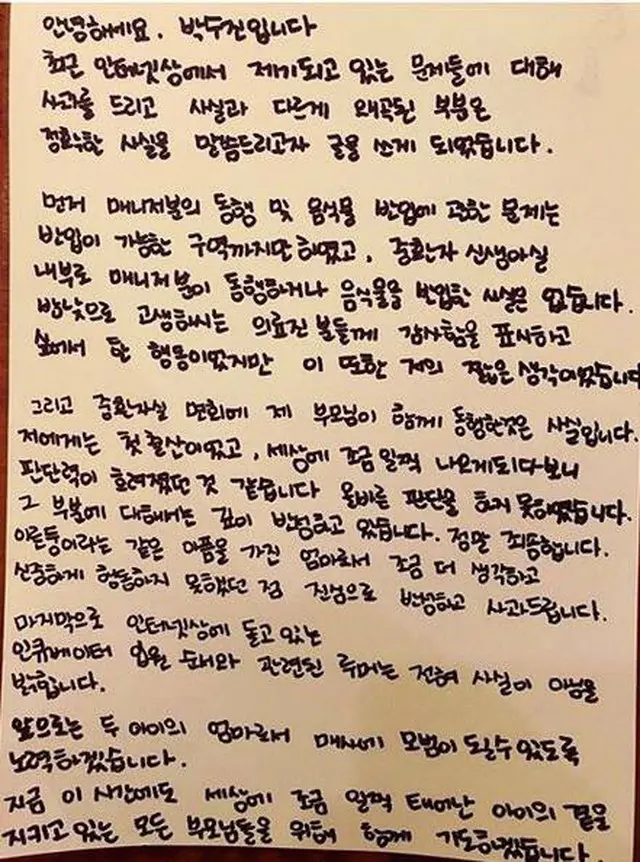 안녕하세요. 박수진입니다
최근 인터넷상에서 제기되고 있는 문제들에 대해
사과를 드리고 사실과 다르게 왜곡된 부분은
정확한 사실을 말씀드리고자 글을 쓰게 되었습니다.
먼저 매니저분의 동행 및 음식물 반입에 관한 문제는
반입이 가능한 구역까지만 하였고, 중환자 신생아실
내부로 매니저분이 동행하거나 음식물을 반입한 사실은 없습니다.
밤낮으로 고생하시는 의료진 분들께 감사함을 표시하고
싶어서 한 행동이었지만 이 또한 저의 짧은 생각이었습니다
그리고 중환자실 면회에 제 부모님이 함께 동행한것은 사실입니다.
저에게는 첫 출산이었고, 세상에 조금 일찍 나오게되다보니
판단력이 흐려졌던 것 같습니다 올바른 판단을 하지 못하였습니다.
그 부분에 대해서는 깊이 반성하고 있습니다. 정말 죄송합니다.
이른둥이라는 같은 아픔을 가진 엄마로서 조금 더 생각하고
신중하게 행동하지 못했던 점 진심으로 반성하고 사과드립니다.
마지막으로 인터넷상에 돌고 있는
인큐베이터 입원 순서와 관련된 루머는 전혀 사실이 아님을
밝힙니다.
앞으로는 두 아이의 엄마로서 매사에 모범이 되실수 있도록
노력하겠습니다.
지금 이 시간에도 세상에 조금 일찍 태어난 아이의 곁을
지키고 있는 모든 부모님들을 위해 함께 기도하겠습니다